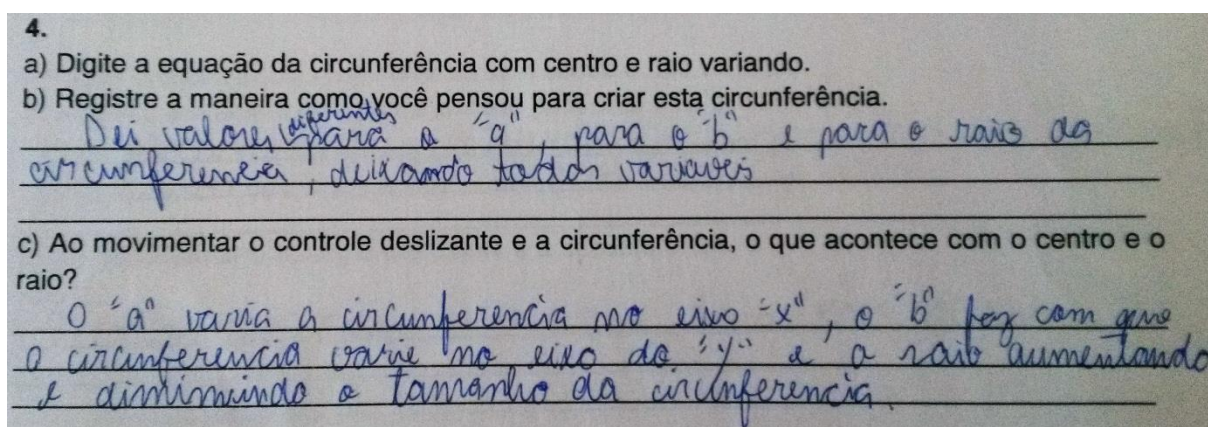 4.
a) Digite a equação da circunferência com centro e raio variando.
b) Registre a maneira como você pensou para criar esta circunferência.
Dei valores diferentes para o "a", para o "b" e para o raio da
circunferencia, deixando todos variaveis
c) Ao movimentar o controle deslizante e a circunferência, o que acontece com o centro e o
raio?
O "a" varia a circunferencia no eixo "x", o "b" faz com que
a circunferencia varie no eixo do "y" e o raio aumentando
e diminuindo o tamanho da circunferencia.